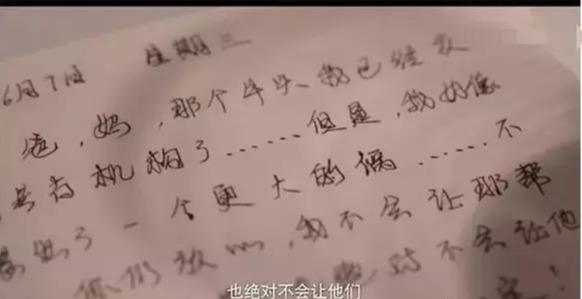 6月7日 星期三
爸,妈,那个牛头我已经交
给有机构了……但是,我好像
了一个更大的祸……不
你们放心,我不会让那帮
绝对不会让他
也绝对不会让他们